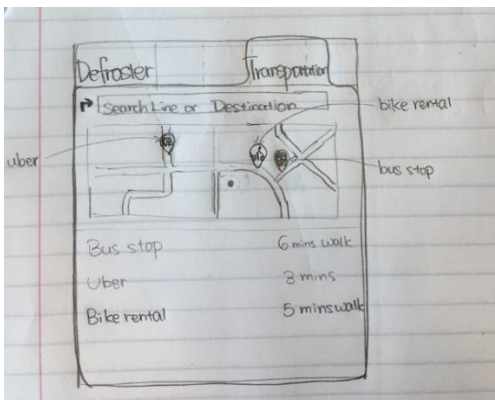 Defroster
Transportation
Search Line or Destination
bike rental
uber
bus stop
Bus stop 6 mins walk
Uber 3 mins
Bike rental 5 mins walk